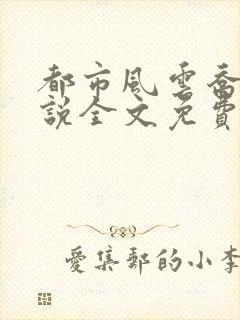 都市風雲喬
說全文免費
愛集郵的小李